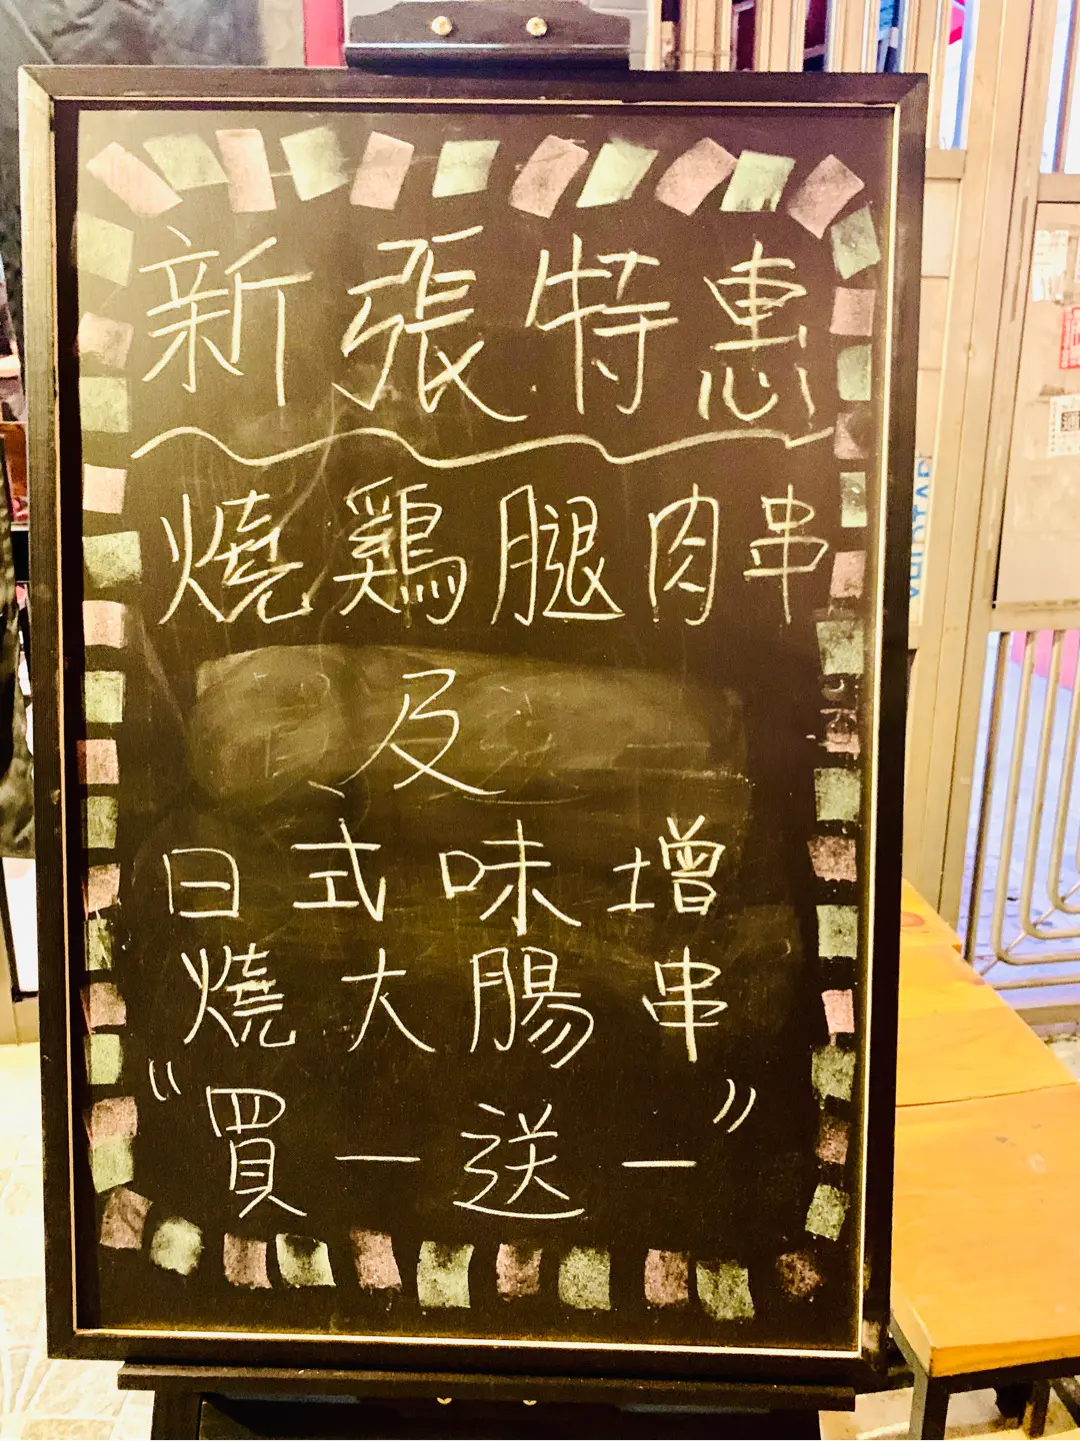 新張特惠
燒鷄腿肉串
及
日式味增
燒大腸串
"買一送一"